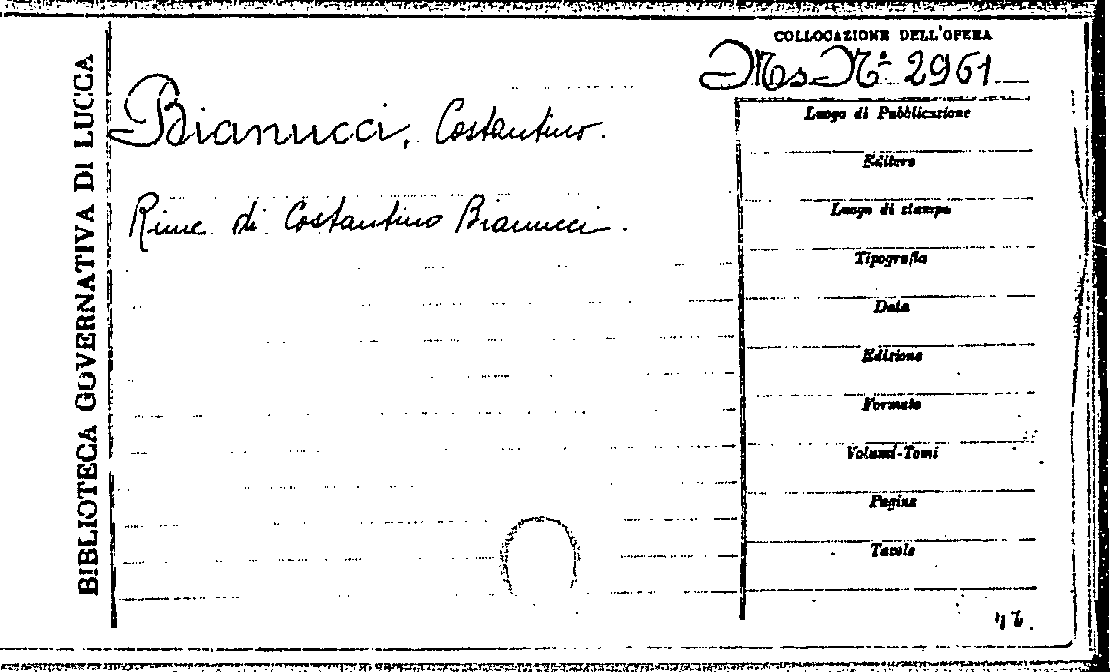 BIBLIOTECA GOVERNATIVA DI LUCCA
COLLOCAZIONE DELL'OPERA
Ms. N.º 2961
Bianucci, Costantino.
Rime di Costantino Bianucci.
Luogo di Pubblicazione
Editore
Luogo di stampa
Tipografia
Data
Edizione
Formato
Volumi-Tomi
Pagine
Tavole